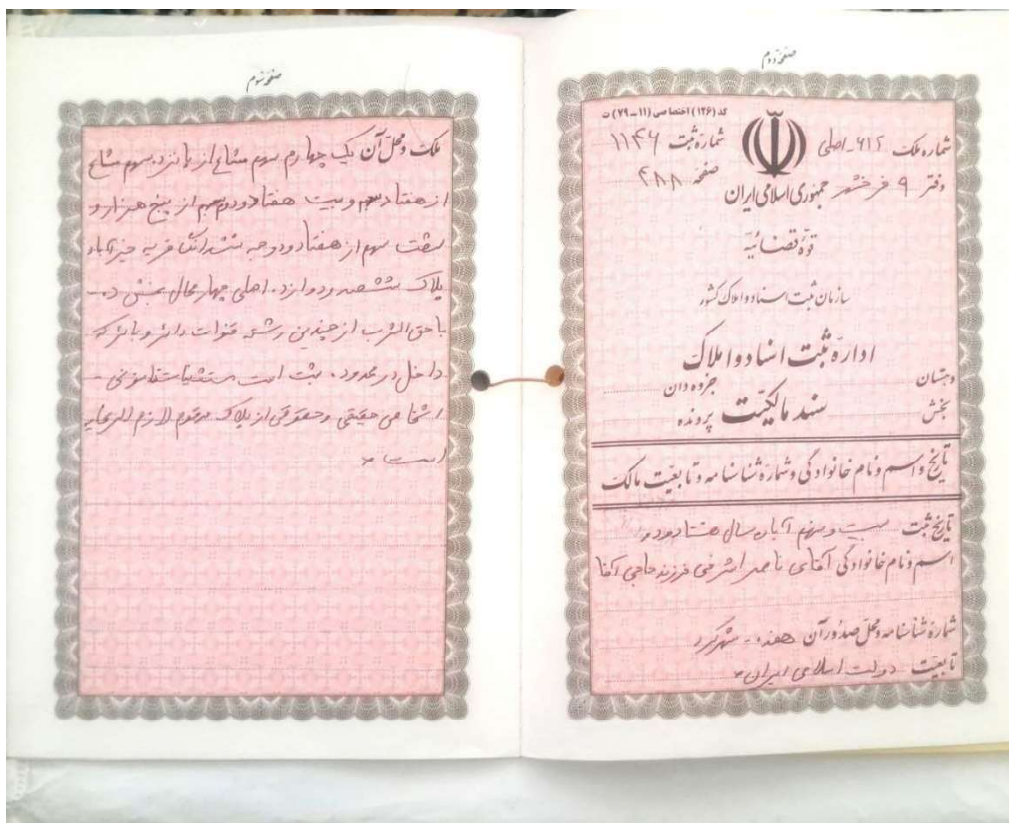 صفحه دوم
کد (۱۴۶) اختصاصی (۱۱-۷۹) ث
شماره ملک ۶۱۲-اصلی
شماره ثبت ۱۱۴۶
دفتر ۹ فرخشهر
صفحه ۴۸۸
جمهوری اسلامی ایران
قوه قضائیه
سازمان ثبت اسناد و املاک کشور
اداره ثبت اسناد و املاک
دهستان
جزوه دان
بخش
سند مالکیت
پرونده
تاریخ و اسم و نام خانوادگی و شماره شناسنامه و تابعیت مالک
تاریخ ثبت بیست و آبان سال هشتاد و دو
اسم و نام خانوادگی آقای ناصر اشرفی فرزند حاجی آقا
شماره شناسنامه و محل صدور آن هفده - شهرکرد
تابعیت دولت اسلامی ایران
صفحه سوم
ملک و محل آن یک چهارم سهم مشاع از پانزده سهم مشاع
از هفتاد سهم و بیست هفتاد و دوم سهم از پنج هزار و
سهم از هفتاد و دو حبه ششدانگ قریه خیرآباد
پلاک ششصد و دوازده اصلی چهارمحال بخش ده
با حق الشرب از چندین رشته قنوات دائر و بائر که
داخل در محدوده ثبت است مستثنیات قانونی
اشخاص حقیقی و حقوقی از پلاک مرقوم لازم الرعایه
است